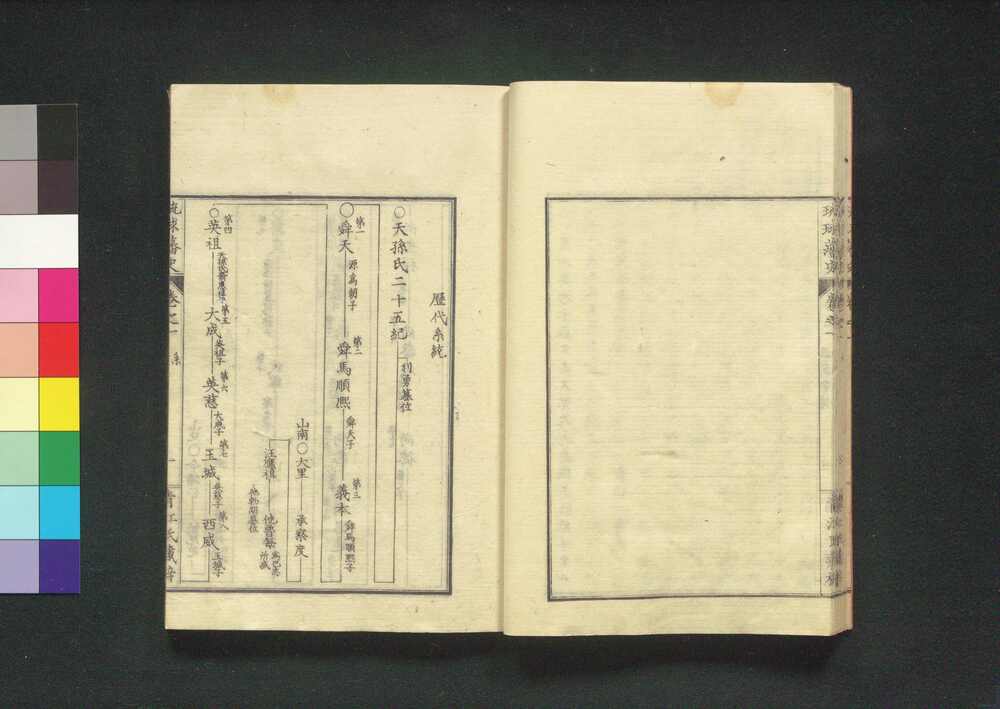 歴代系統
○天孫氏二十五紀 利勇簒位
第一 ○舜天 源爲朝子 第二 舜馬順熙 舜天子 第三 義本 舜馬順熙子
山南○大里 承察度
汪應祖 他魯每 爲巴志所滅
他勃期簒位
第四 ○英祖 天孫氏裔惠祖子 第五 大成 英祖子 第六 英慈 大成子 第七 玉城 英慈子 第八 西威 玉城子
琉球藩史 卷之一 系 一
琉球藩史 卷之一